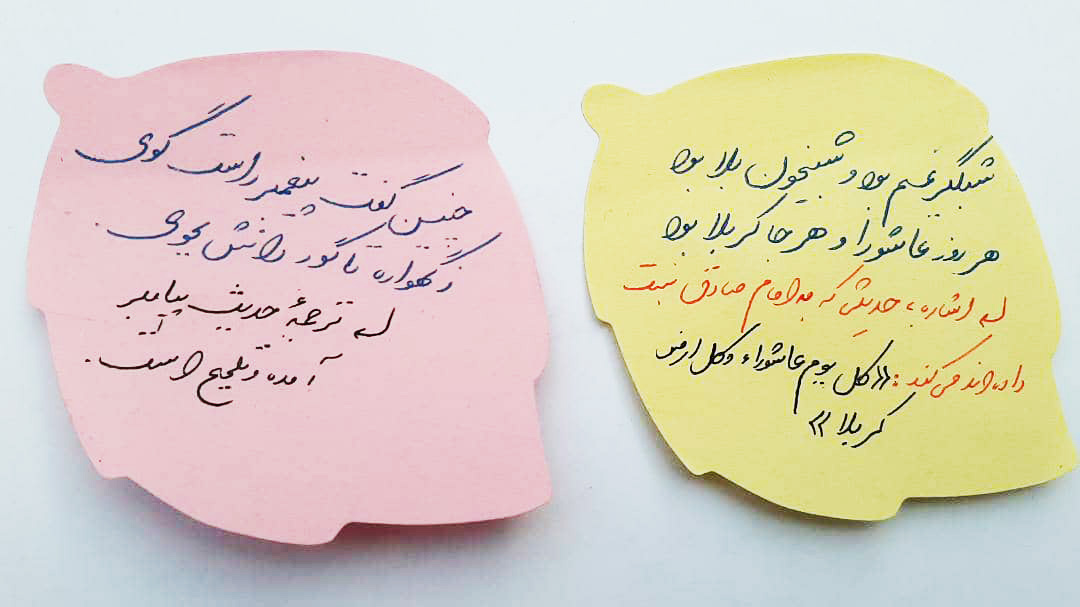 شبگیر غم بود و شبیخون بلا بود
هر روز عاشورا و هر جا کربلا بود
اشاره به حدیثی که به امام صادق نسبت
داده‌اند می‌کند: «کل یوم عاشوراء و کل ارض
کربلا»
چنین گفت پیغمبر راست گوی
ز گهواره تا گور دانش بجوی.
ترجمهٔ حدیث پیامبر
آمده و تلمیح است.